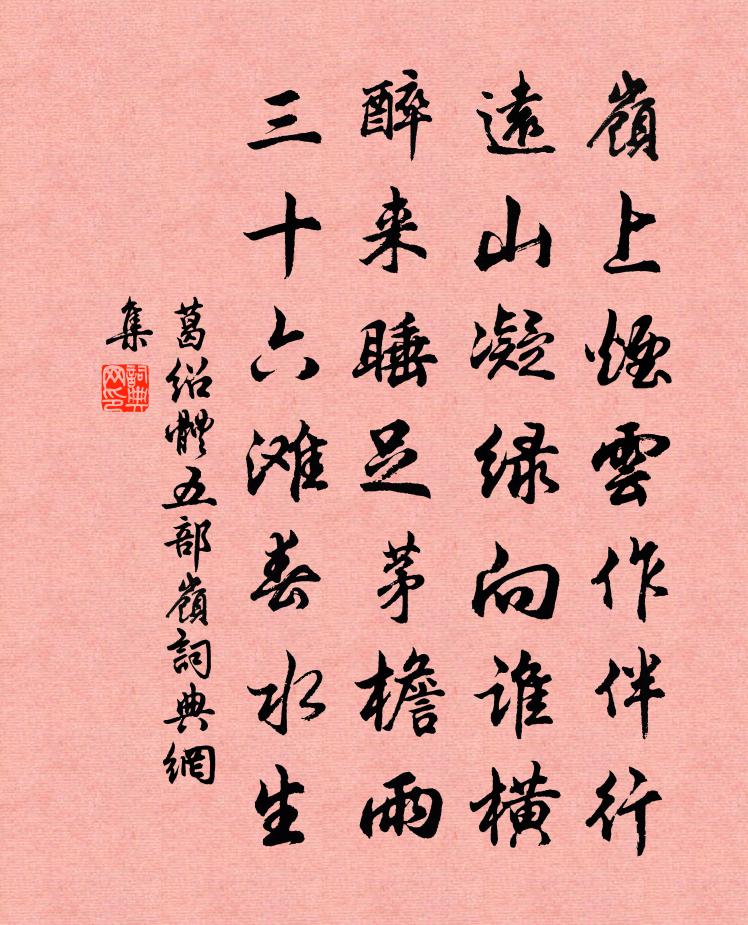 嶺上煙雲作伴行
遠山凝绿向誰橫
醉来睡足茅檐雨
三十六滩春水生
葛绍體五部嶺詞典網
集
詞典
网印